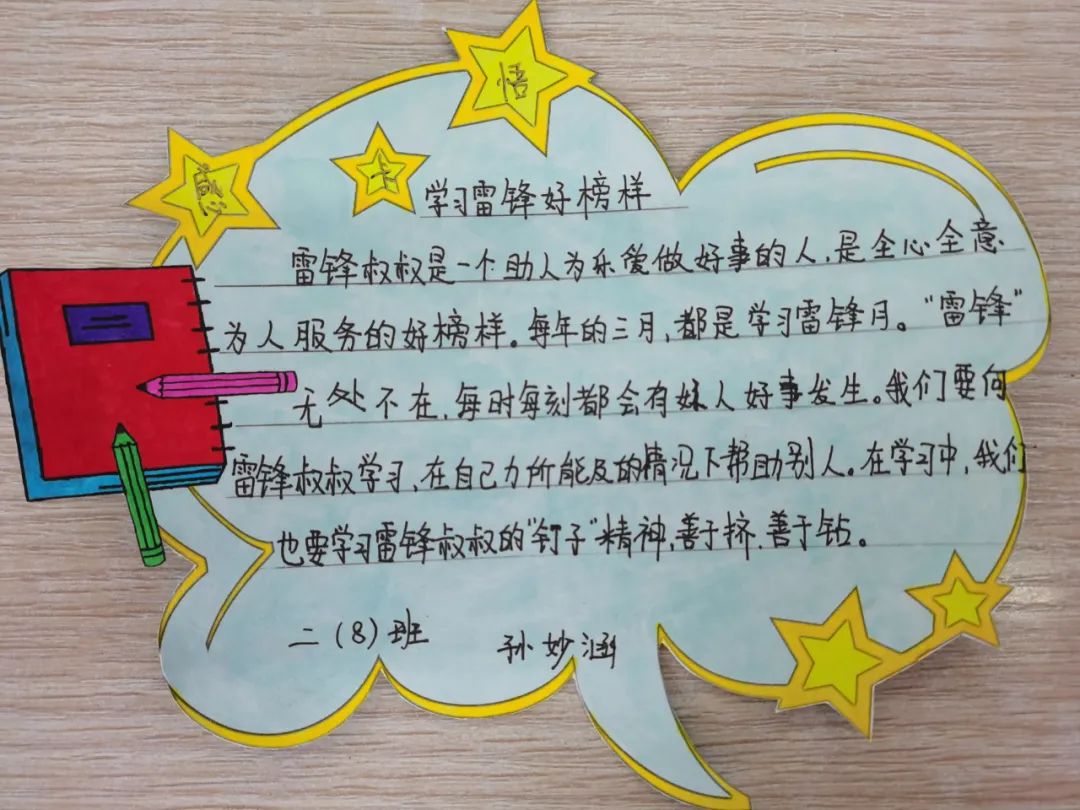 感
悟
卡
学习雷锋好榜样
雷锋叔叔是一个助人为乐爱做好事的人,是全心全意
为人服务的好榜样。每年的三月,都是学习雷锋月。“雷锋”
无处不在,每时每刻都会有好人好事发生。我们要向
雷锋叔叔学习,在自己力所能及的情况下帮助别人。在学习中,我们
也要学习雷锋叔叔的“钉子”精神,善于挤、善于钻。
二(8)班 孙妙涵